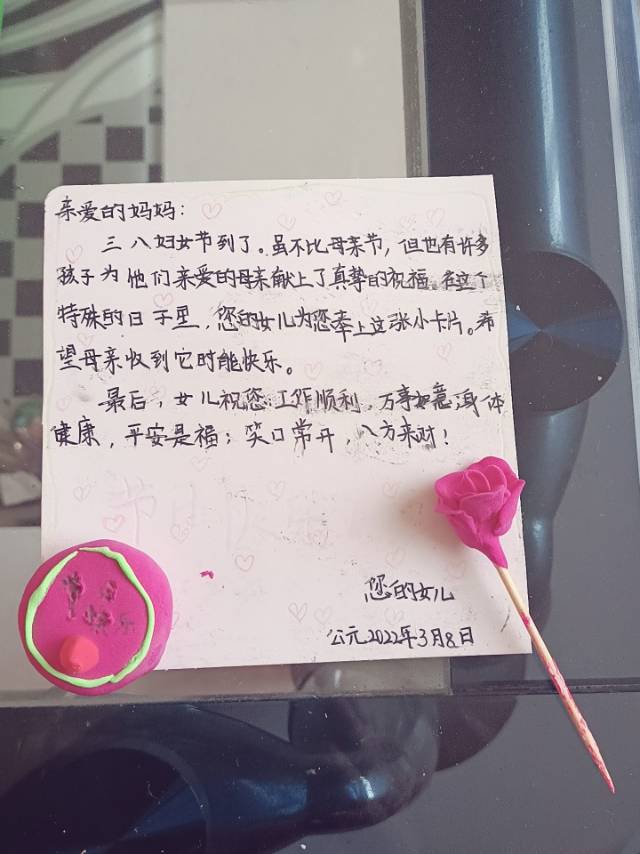 亲爱的妈妈：
三八妇女节到了。虽不比母亲节，但也有许多
孩子为他们亲爱的母亲献上了真挚的祝福。在这个
特殊的日子里，您的女儿为您奉上这张小卡片。希
望母亲收到它时能快乐。
最后，女儿祝您工作顺利，万事如意；身体
健康，平安是福；笑口常开，八方来财！
您的女儿
公元2022年3月8日
节日
快乐